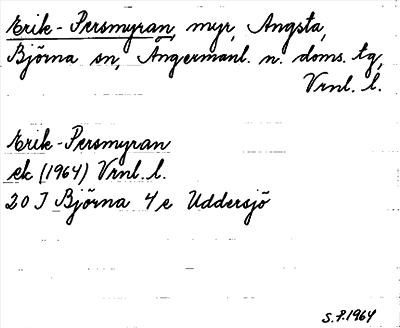 Erik-Persmyran, myr, Angsta,
Björna sn, Ångermanl. n. doms. tg,
Vrnl. l.
Erik-Persmyran
ek (1964) Vrnl. l.
20 I Björna 4 e Uddersjö
S.P. 1964